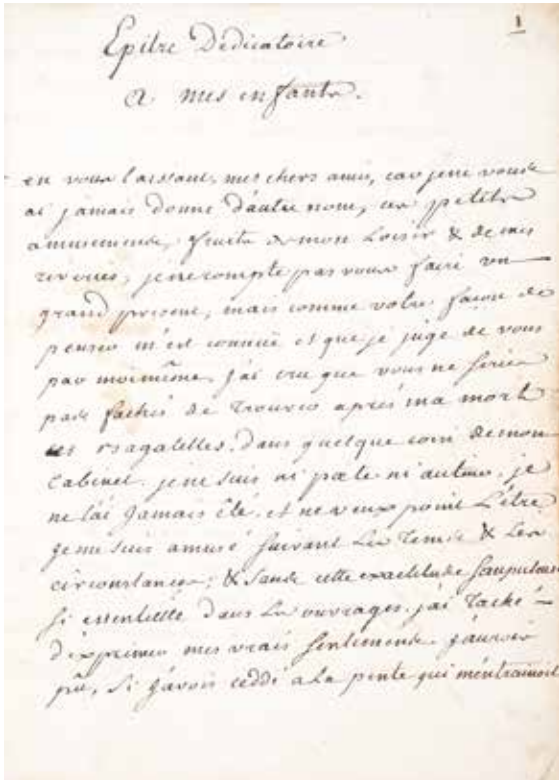 1
Epitre Dédicatoire
a mes enfants.
en vous laissant, mes chers amis, car je ne vous
ai jamais donné d'autre nom, ces petits
amusemens, fruits de mon loisir & de mes
reveries, je ne compte pas vous faire un
grand present, mais comme votre façon de
penser m'est connüe et que je juge de vous
par moimême, j'ai cru que vous ne seriés
pas fachés de trouver aprés ma mort
ces bagatelles, dans quelque coin de mon
cabinet. je ne suis ni poete ni auteur, je
ne l'ai jamais été, et ne veux point l'être
je me suis amusé suivant les tems & les
circonstances; & sans cette exactitude scrupuleuse
si essentielle dans les ouvrages, j'ai taché
d'exprimer mes vrais sentimens. j'aurois
pû, si j'avois ceddé a la pente qui m'entrainoit